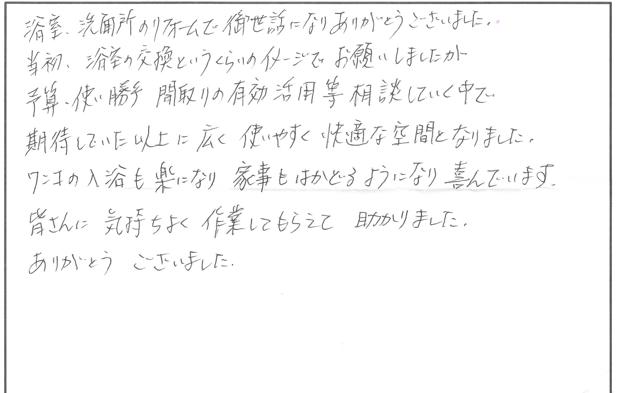 浴室、洗面所のリフォームで御世話になりありがとうございました。
当初、浴室の交換というくらいのイメージでお願いしましたが
予算、使い勝手 間取りの有効活用等相談していく中で
期待していた以上に広く使いやすく快適な空間となりました。
ワンキの入浴も楽になり 家事もはかどるようになり喜んでいます。
皆さんに 気持ちよく 作業してもらえて 助かりました。
ありがとう ございました。